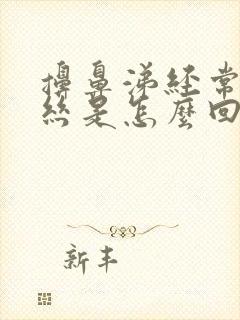 擤鼻涕經常
絲是怎麼回
新丰